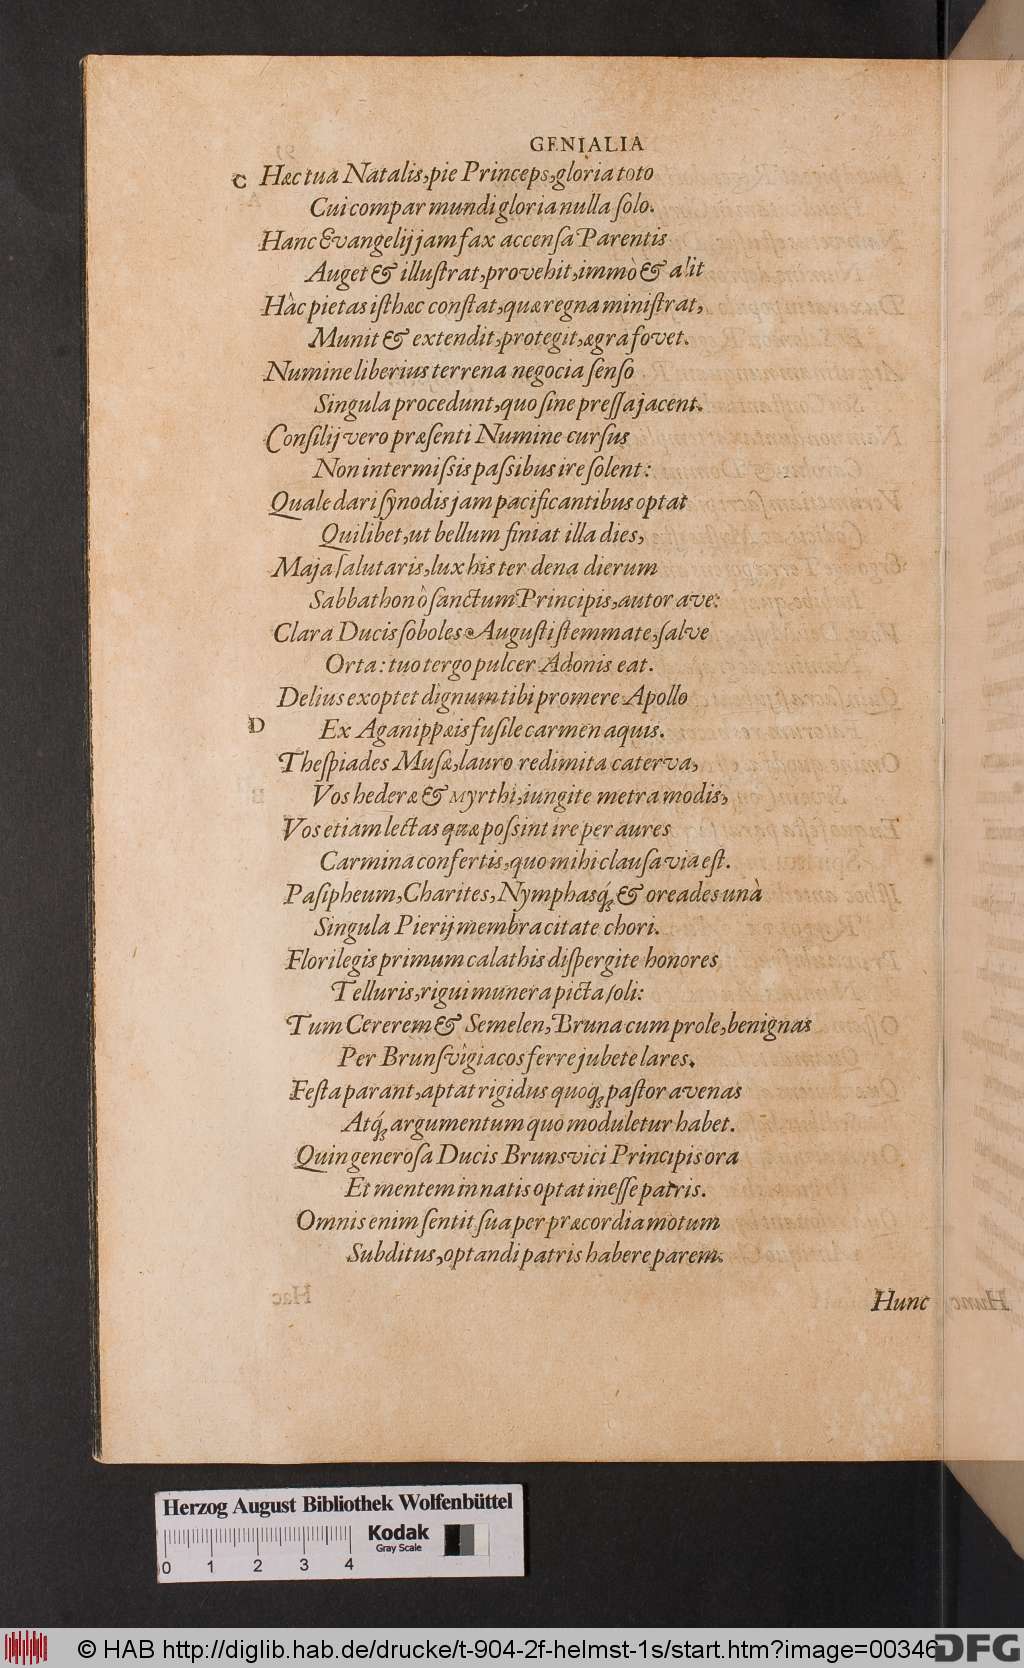 GENIALIA
C Hæc tua Natalis, pie Princeps, gloria toto
Cui compar mundi gloria nulla ſolo.
Hanc Evangelij jam fax accenſa Parentis
Auget & illuſtrat, provehit, immò & alit
Hâc pietas iſthæc conſtat, quæ regna miniſtrat,
Munit & extendit, protegit, ægra fovet.
Numine liberius terrena negocia ſenſo
Singula procedunt, quo ſine preſſa jacent.
Conſilij vero præſenti Numine curſus
Non intermiſsis paſsibus ire ſolent:
Quale dari ſynodis jam pacificantibus optat
Quilibet, ut bellum finiat illa dies,
Maja ſalutaris, lux his ter dena dierum
Sabbathon ô ſanctum Principis, autor ave:
Clara Ducis ſoboles Auguſti ſtemmate, ſalve
Orta: tuo tergo pulcer Adonis eat.
Delius exoptet dignum tibi promere Apollo
D Ex Aganippæis fuſile carmen aquis.
Theſpiades Muſæ, lauro redimita caterva,
Vos hederæ & Myrthi, iungite metra modis,
Vos etiam lectas quæ poſsint ire per aures
Carmina confertis, quo mihi clauſa via eſt.
Paſipheum, Charites, Nymphasq́; & oreades unà
Singula Pierij membra citate chori.
Florilegis primum calathis diſpergite honores
Telluris, rigui munera picta ſoli:
Tum Cererem & Semelen, Bruna cum prole, benignas
Per Brunſvîgiacos ferre jubete lares.
Feſta parant, aptat rigidus quoq; paſtor avenas
Atq́; argumentum quo moduletur habet.
Quin generoſa Ducis Brunsvici Principis ora
Et mentem in natis optat ineſſe patris.
Omnis enim ſentit ſua per præcordia motum
Subditus, optandi patris habere parem.
Hunc
Herzog August Bibliothek Wolfenbüttel
Kodak
Gray Scale
0 1 2 3 4
© HAB http://diglib.hab.de/drucke/t-904-2f-helmst-1s/start.htm?image=00346
DFG